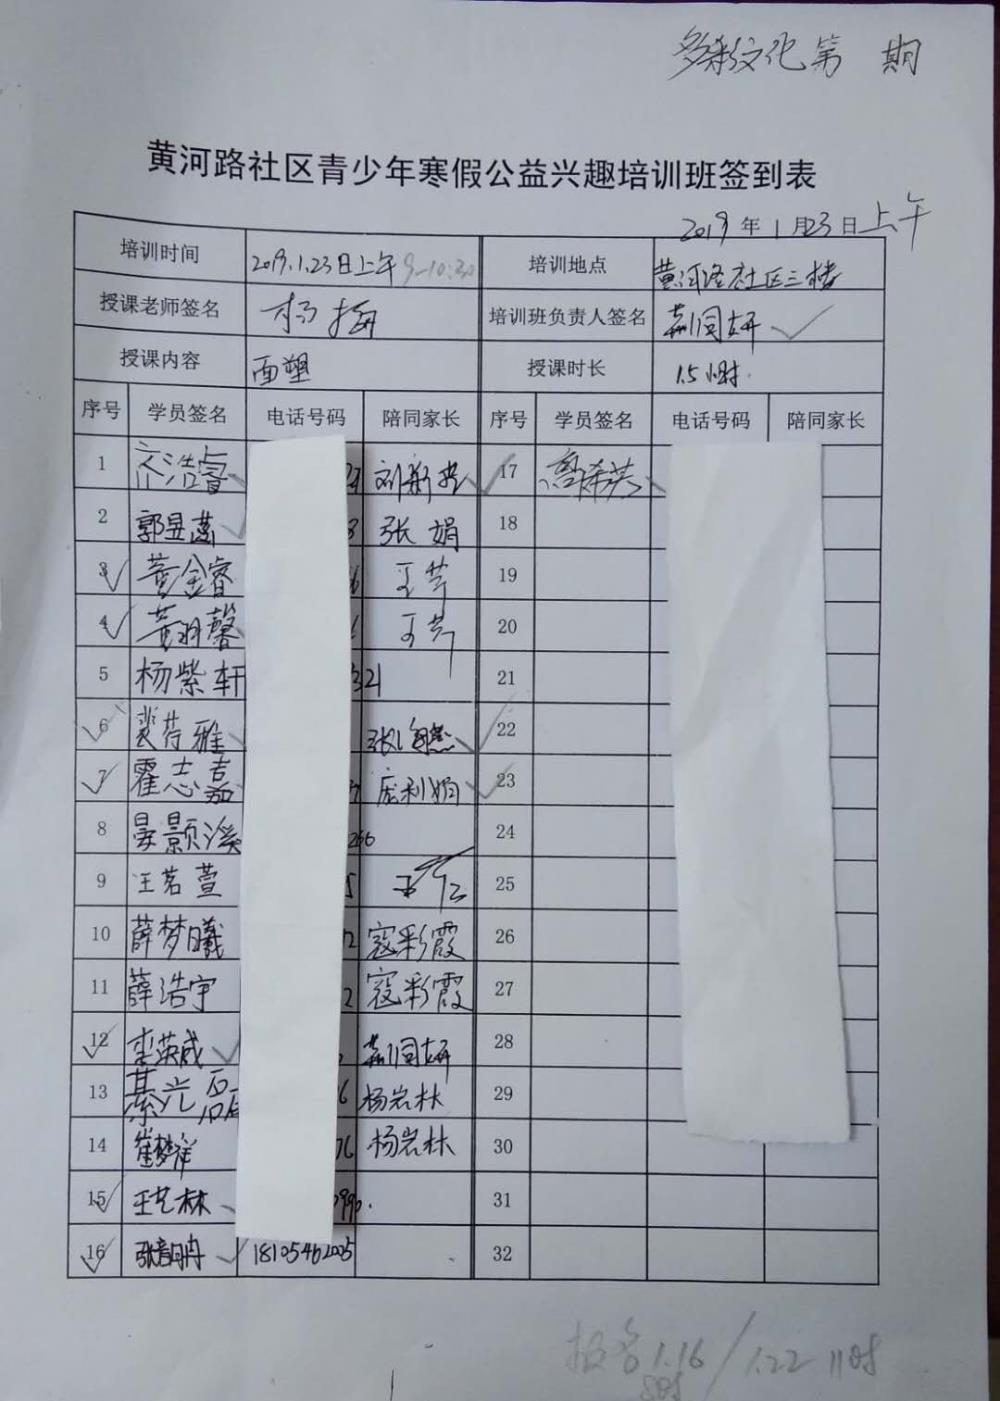 多彩文化第 期
黄河路社区青少年寒假公益兴趣培训班签到表
2019年1月23日上午
培训时间 2019.1.23日上午9-10:30 培训地点 黄河路社区三楼
授课老师签名 杨梅 培训班负责人签名
授课内容 面塑 授课时长 1.5小时.
序号 学员签名 电话号码 陪同家长 序号 学员签名 电话号码 陪同家长
1 17
2 郭昱菡 张娟 18
3 黄金睿 王芹 19
4 黄羽馨 王芹 20
5 杨紫轩 321 21
6 裴荷雅 22
7 霍志嘉 庞利娟 23
8 晏颢溪 266 24
9 王茗萱 25
10 薛梦曦 寇彩霞 26
11 薛浩宇 2 寇彩霞 27
12 栾英成 28
13 綦光 6 杨岩林 29
14 崔梦祥 76 杨岩林 30
15 王艺林 990. 31
16 18105462005 32
报名1.16/1.22 11时
8时